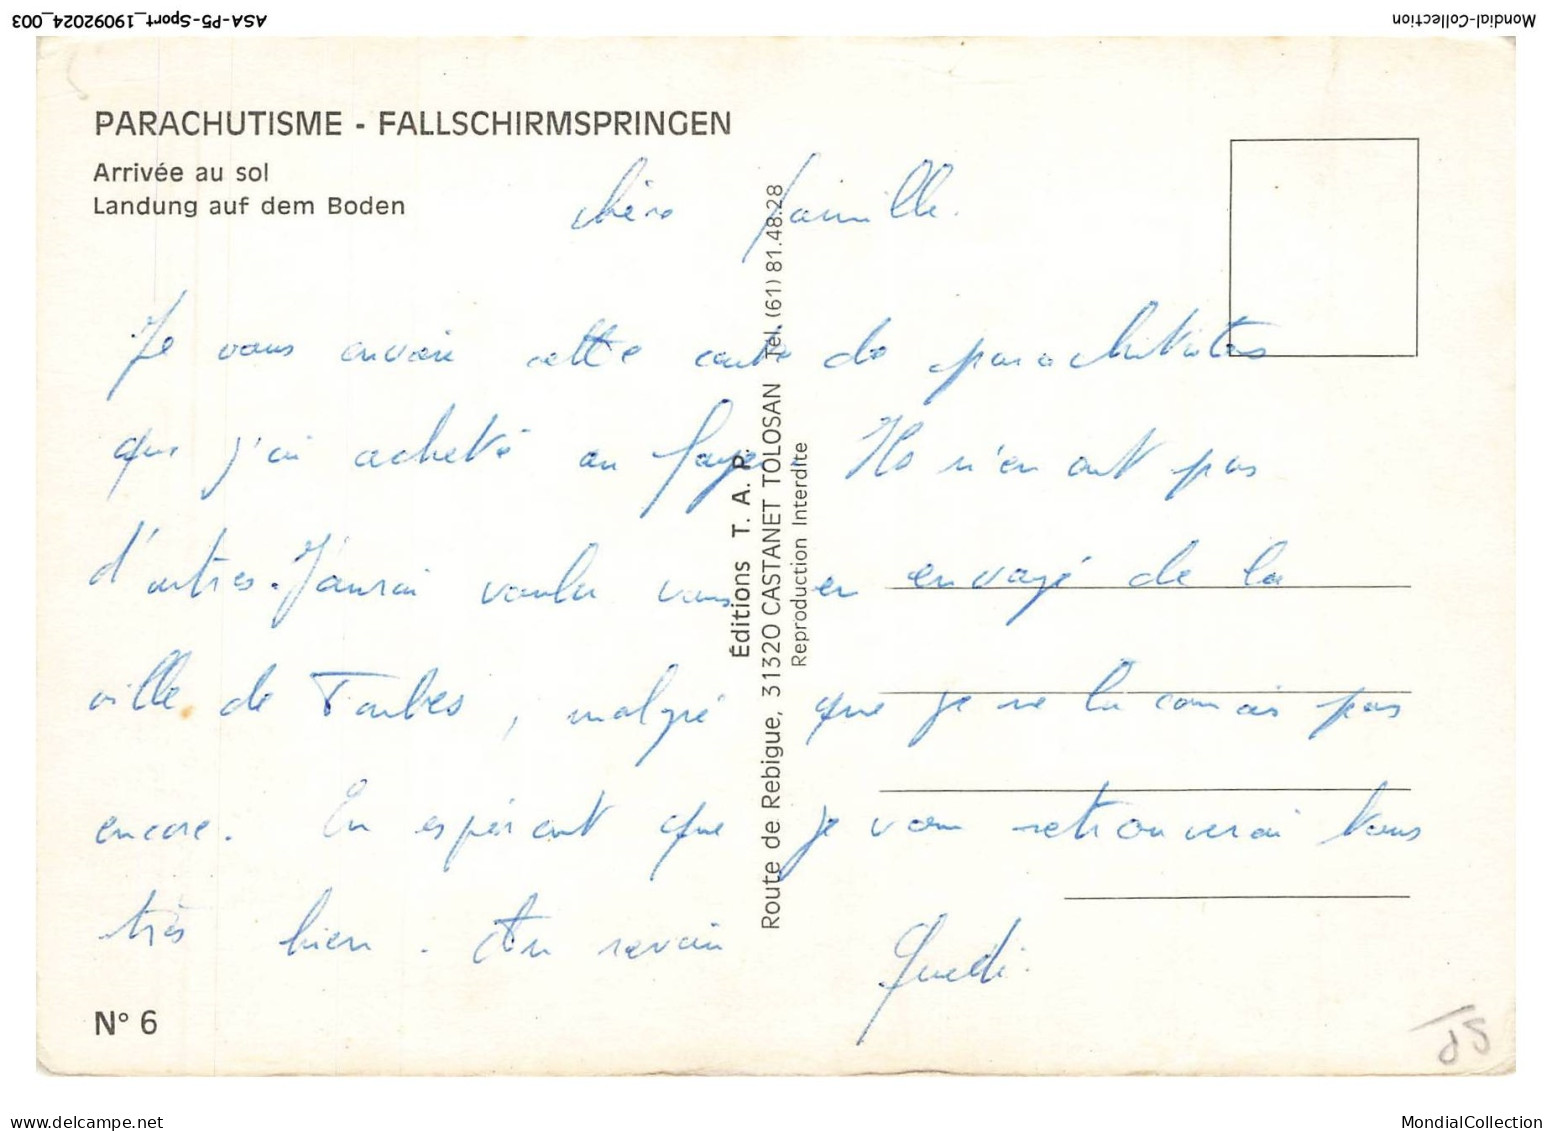 ASA-P5-Sport_19092024_003
Mondial-Collection
PARACHUTISME - FALLSCHIRMSPRINGEN
Arrivée au sol
Landung auf dem Boden
chère famille.
Je vous envoie cette carte de parachutistes
que j'ai acheté au foyer Ils n'en ont pas
d'autres. J'aurai voulu vous en envoyé de la
ville de Tarbes, malgré que je ne la connais pas
encore. En espérant que je vous retrouverai tous
très bien. Au revoir
Éditions T. A. P.
Route de Rebigue, 31320 CASTANET TOLOSAN Tél. (61) 81.48.28
Reproduction Interdite
N° 6
delcampe.net
MondialCollection